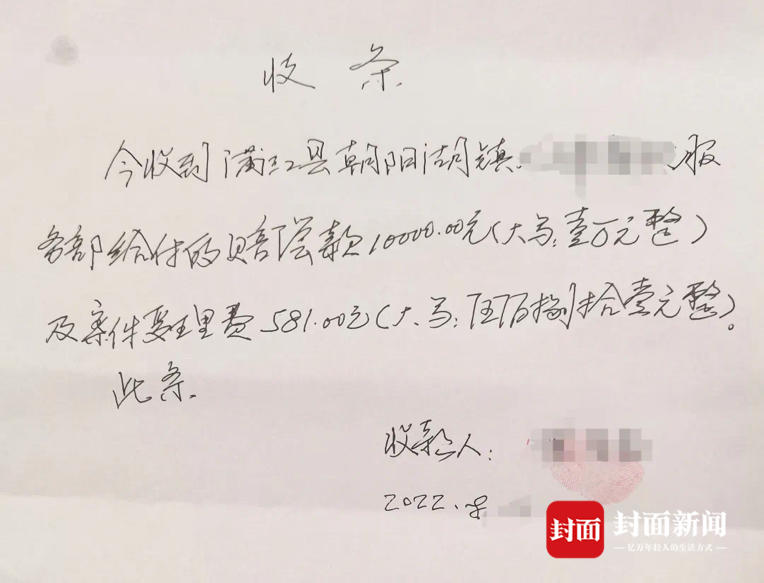 收条
今收到蒲江县朝阳湖镇 服
务部给付的赔偿款10000.00元(大写:壹万元整)
及案件受理费581.00元(大写:伍佰捌拾壹元整)。
此条
收款人:
2022.8
封面 封面新闻
亿万年轻人的生活方式